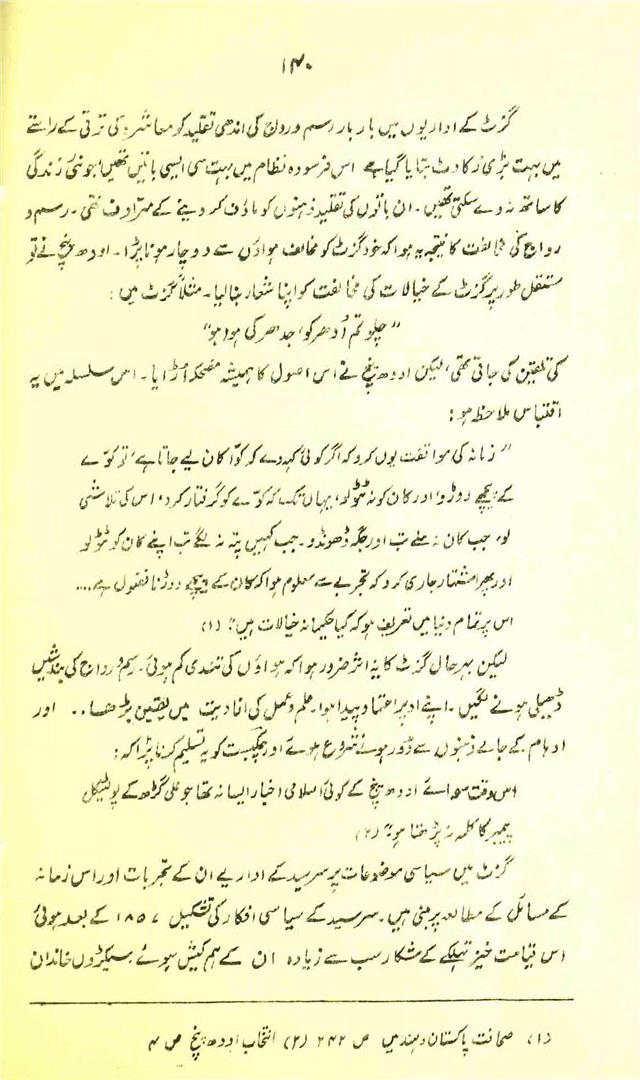 ۱۴۰
گزٹ کے اداریوں میں بار بار رسم و رواج کی اندھی تقلید کو معاشرہ کی ترقی کے راستے
میں بہت بڑی رکاوٹ بتایا گیا ہے اس فرسودہ نظام میں بہت سی ایسی باتیں تھیں جو نئی زندگی
کا ساتھ نہ دے سکتی تھیں۔ ان باتوں کی تقلید ذہنوں کو ماؤف کر دینے کے مترادف تھی۔ رسم و
رواج کی مخالفت کا نتیجہ یہ ہوا کہ خود گزٹ کو مخالف ہواؤں سے دوچار ہونا پڑا۔ اودھ پنچ نے تو
مستقل طور پر گزٹ کے خیالات کی مخالفت کو اپنا شعار بنا لیا۔ مثلاً گزٹ میں :
"چلو تم اُدھر کو، جدھر کی ہوا ہو"
کی تلقین کی جاتی تھی، لیکن اودھ پنچ نے اس اصول کا ہمیشہ مضحکہ اڑایا۔ اس سلسلہ میں یہ
اقتباس ملاحظہ ہو :
"زمانہ کی موافقت یوں کرو کہ اگر کوئی کہہ دے کہ کوّا کان لیے جاتا ہے، تو کوّے
کے پیچھے دوڑو، اور کان کو نہ ٹٹولو، یہاں تک کہ کوّے کو گرفتار کرو، اس کی تلاشی
لو، جب کان نہ ملے تب اور جگہ ڈھونڈو۔ جب کہیں پتہ نہ لگے تب اپنے کان کو ٹٹولو
اور پھر اشتہار جاری کرو کہ تجربے سے معلوم ہوا کہ کان کے پیچھے دوڑنا فضول ہے....
اس پر تمام دنیا میں تعریف ہو کہ کیا حکیمانہ خیالات ہیں" (۱)
لیکن بہر حال گزٹ کا یہ اثر ضرور ہوا کہ ہواؤں کی تندی کم ہوئی۔ رسم و رواج کی بندشیں
ڈھیلی ہونے لگیں۔ اپنے اوپر اعتماد پیدا ہوا۔ علم و عمل کی افادیت میں یقین بڑھا.. اور
اوہام کے جالے ذہنوں سے دور ہونے شروع ہوئے اور چکبست کو یہ تسلیم کرنا پڑا کہ :
اس وقت سوائے اودھ پنچ کے کوئی اسلامی اخبار ایسا نہ تھا جو علی گڑھ کے پولٹیکل
پیمبر کا کلمہ نہ پڑھتا ہو" (۲)
گزٹ میں سیاسی موضوعات پر سرسید کے اداریے ان کے تجربات اور اس زمانہ
کے مسائل کے مطالعہ پر مبنی ہیں۔ سرسید کے سیاسی افکار کی تشکیل ۱۸۵۷ کے بعد ہوئی
اس قیامت خیز تہلکے کے شکار سب سے زیادہ ان کے ہم کیش ہوئے سیکڑوں خاندان
(۱) صحافت پاکستان و ہند میں ص ۲۴۲ (۲) انتخاب اودھ پنچ ص ۴